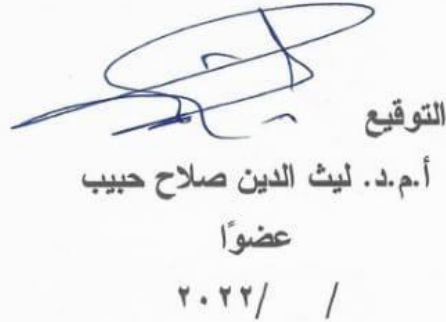 التوقيع
أ.م.د. ليث الدين صلاح حبيب
عضوًا
/ /٢٠٢٢